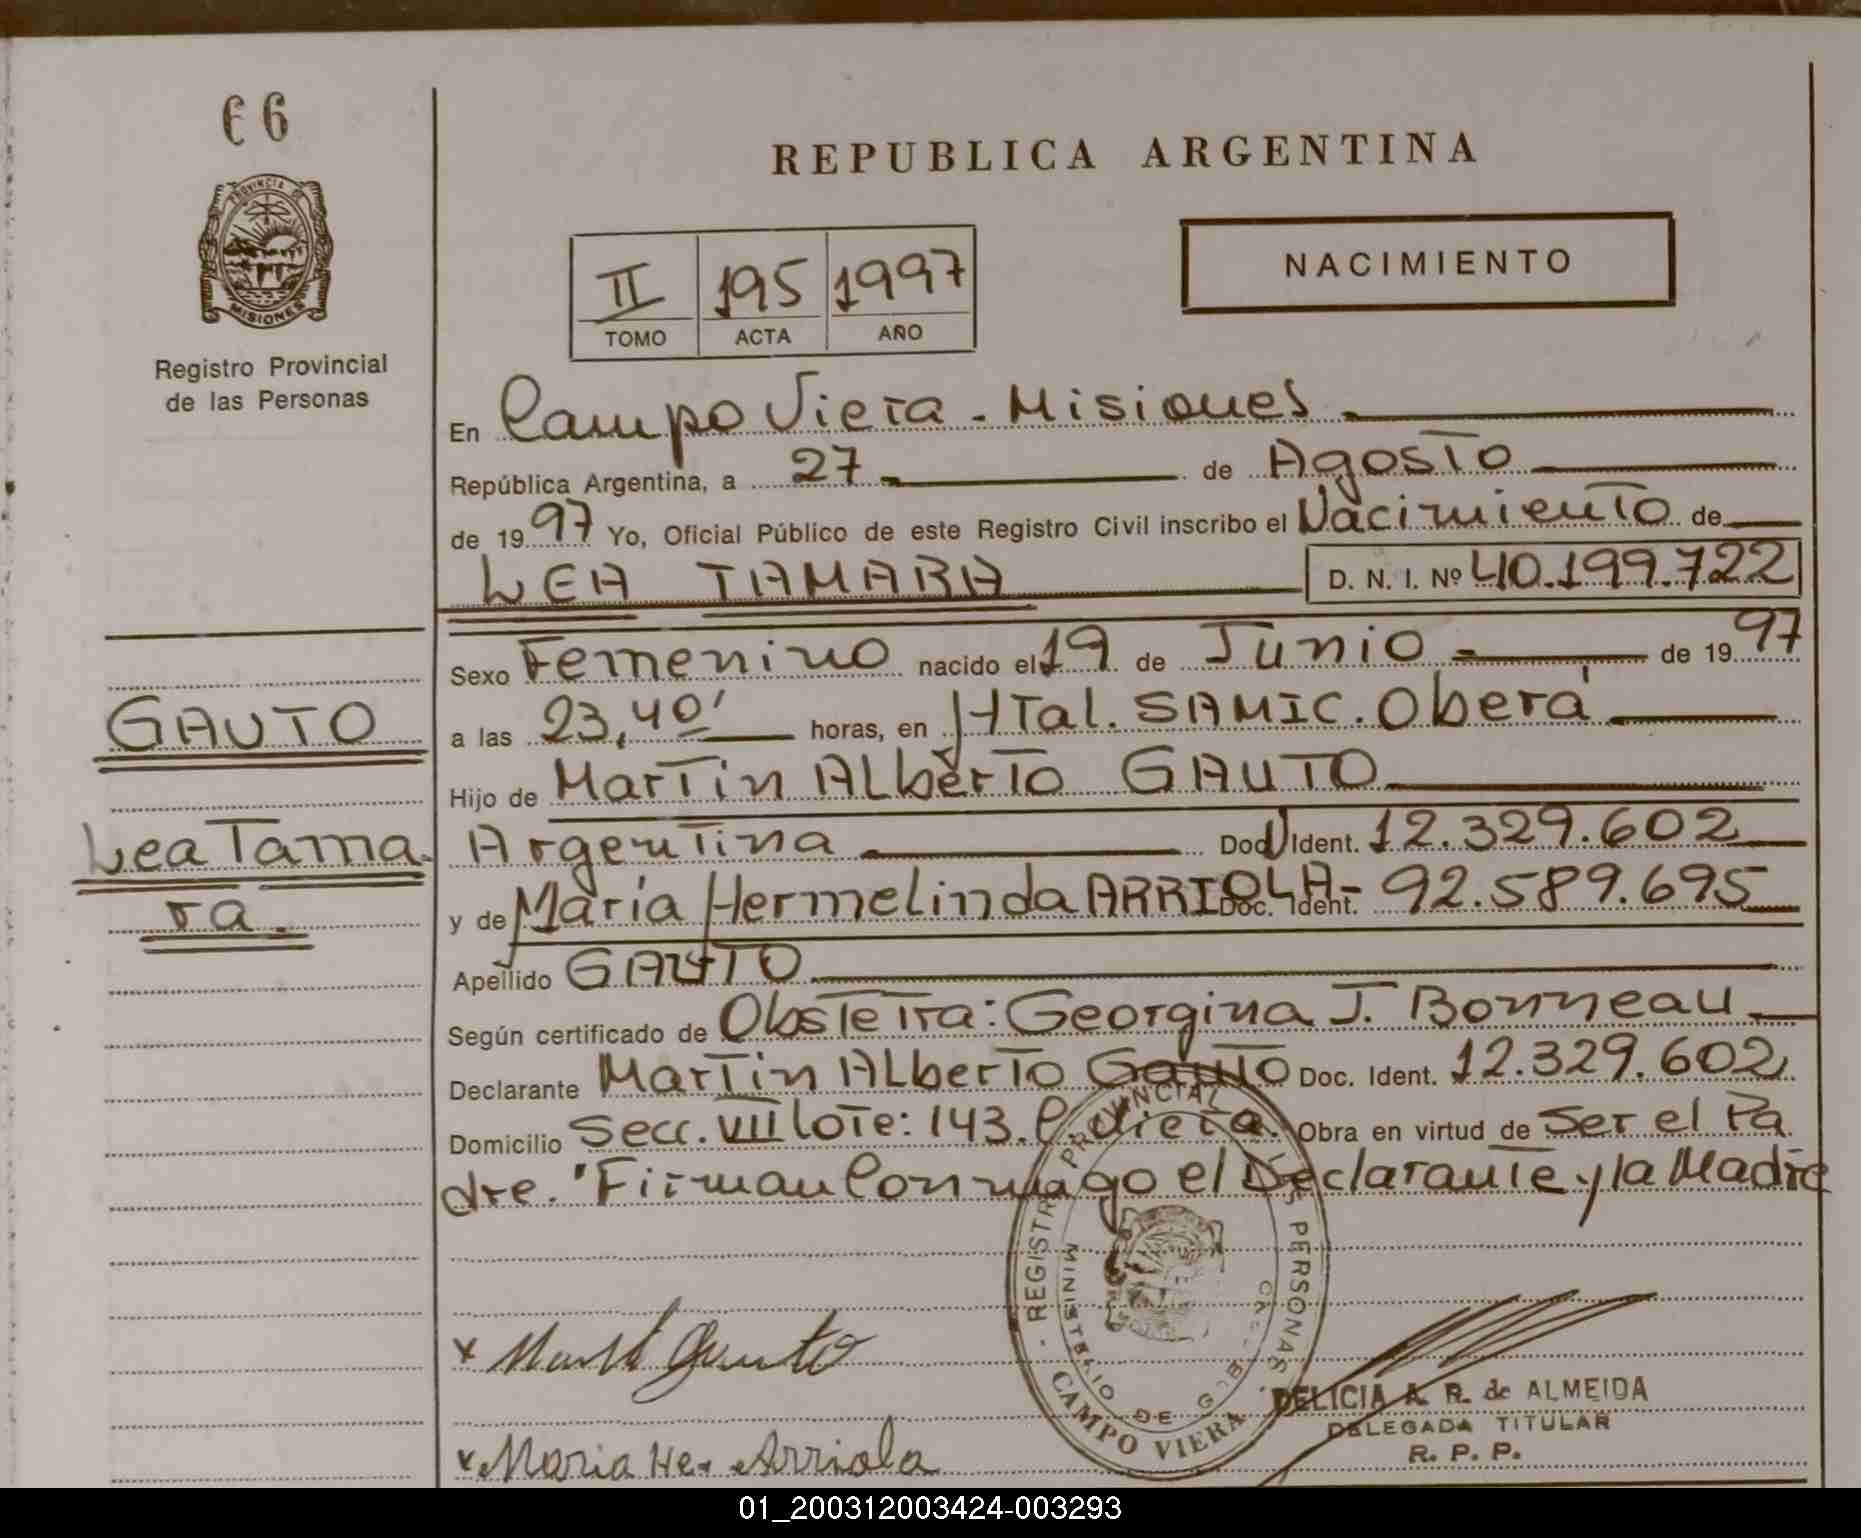 66
PROVINCIA DE
MISIONES
Registro Provincial
de las Personas
REPUBLICA ARGENTINA
II 195 1997
TOMO ACTA AÑO
NACIMIENTO
En Campo Viera - Misiones
República Argentina, a 27 de Agosto
de 1997 Yo, Oficial Público de este Registro Civil inscribo el Nacimiento de
LEA TAMARA D. N. I. Nº 40.199.722
Sexo Femenino nacido el 19 de Junio - de 1997
a las 23,40' horas, en Htal. SAMIC. Oberá
Hijo de Martin Alberto GAUTO
Argentina Doc. Ident. 12.329.602
y de María Hermelinda ARRIOLA- Doc. Ident. 92.589.695
Apellido GAUTO
Según certificado de Obstetra: Georgina J. Bonneau
Declarante Martin Alberto Gauto Doc. Ident. 12.329.602
Domicilio Secc. VII lote: 143. C. Viera. Obra en virtud de Ser el Pa
dre. Firman Conmigo el Declarante y la Madre
GAUTO
Lea Tama-
ra.
x Martí Gauto
x Maria He. Arriola
REGISTRO PROVINCIAL DE LAS PERSONAS
MINISTERIO DE GOB.
CAMPO VIERA
DELICIA A. R. de ALMEIDA
DELEGADA TITULAR
R. P. P.
01_200312003424-003293